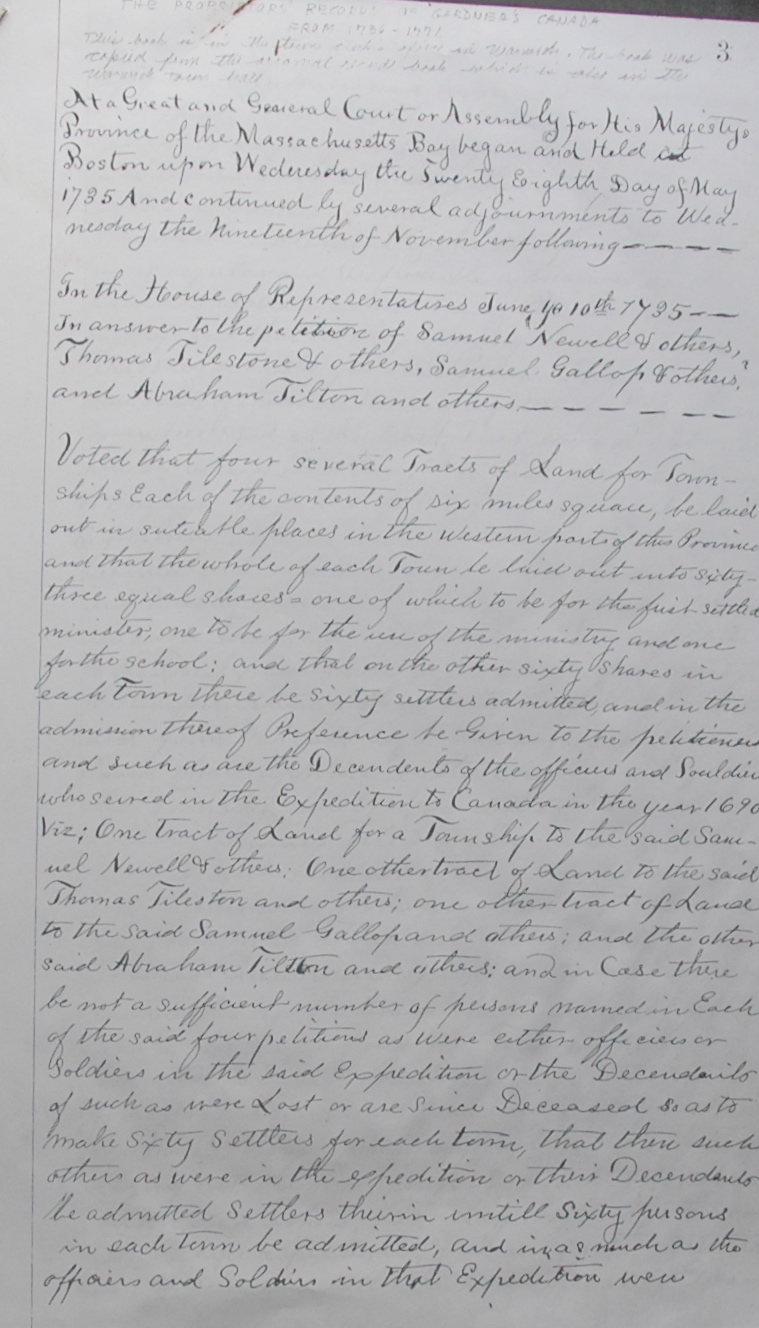 THE PROPRIETORS RECORDS IN GARDNER'S CANADA
FROM 1736-1771
3
This book is in the town in Warwick. The book was
copied from the record book which is also in the
Warwick Town hall.
At a Great and General Court or Assembly for His Majestys
Province of the Massachusetts Bay began and Held at
Boston upon Wednesday the Twenty Eighth Day of May
1735 And continued by several adjournments to Wed-
nesday the Nineteenth of November following-----
In the House of Representatives June ye 10th 1735--
In answer to the petition of Samuel Newell & others,
Thomas Tilestone & others, Samuel Gallop & others,
and Abraham Tilton and others------
Voted that four several Tracts of Land for Town-
ships Each of the contents of six miles square, be laid
out in suteable places in the western parts of this Province
and that the whole of each Town be laid out into sixty-
three equal shares = one of which to be for the first settled
minister, one to be for the use of the ministry and one
for the school; and that on the other sixty shares in
each Town there be sixty settlers admitted, and in the
admission thereof Preference be Given to the petitioners
and such as are the Decendents of the officers and Souldiers
who served in the Expedition to Canada in the year 1690
Viz; One tract of Land for a Township to the said Sam-
uel Newell & others; One other tract of Land to the said
Thomas Tileston and others; one other tract of Land
to the said Samuel Gallop and others; and the other
said Abraham Tilton and others; and in Case there
be not a sufficient number of persons named in Each
of the said four petitions as were either officiers or
Soldiers in the said Expedition or the Decendants
of such as were Lost or are Since Deceased so as to
make Sixty Settlers for each town, that there such
others as were in the expedition or their Decendants
be admitted Settlers therin untill Sixty persons
in each town be admitted, and in as much as the
officiers and Soldiers in that Expedition were